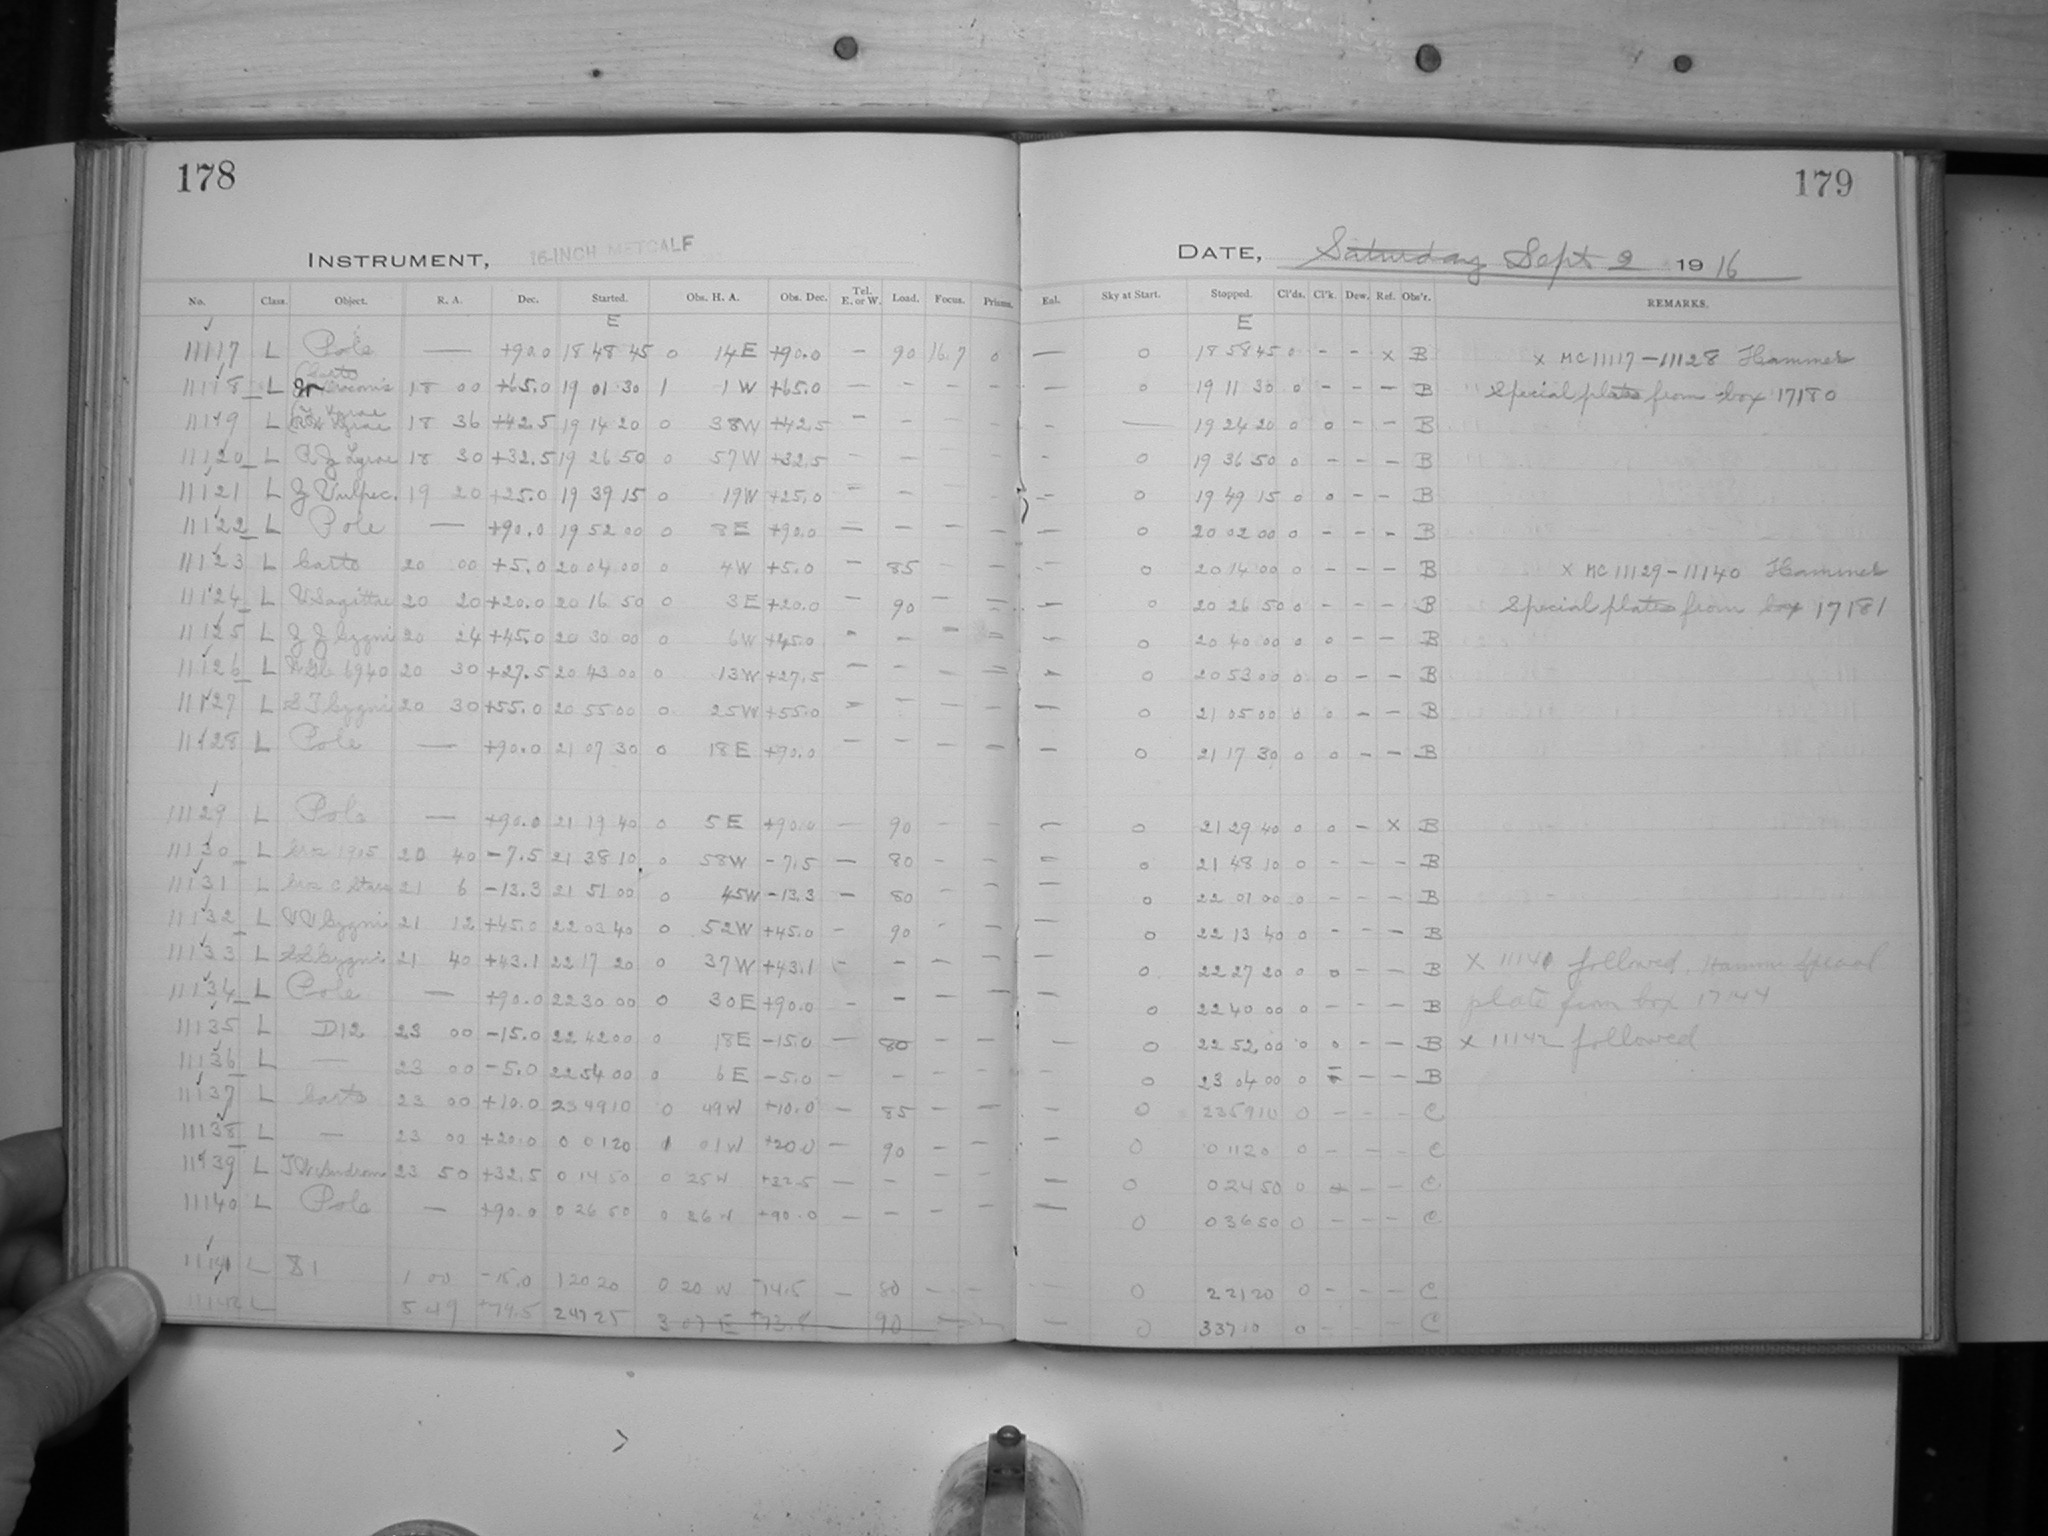 178
179
INSTRUMENT, 16-INCH METCALF
DATE, Saturday Sept 2 1916
No. Class. Object. R. A. Dec. Started. Obs. H. A. Obs. Dec. Tel. E. or W. Load. Focus. Prisms. Eal. Sky at Start. Stopped. Cl'ds. Cl'k. Dew. Ref. Obs'r. REMARKS.
E E
11117 L Pole — +90.0 18 48 45 0 14 E +90.0 - 90 16.7 0 — 0 18 58 45 0 - - x B x MC 11117-11128 Hammer
11118 L 18 00 +65.0 19 01 30 1 1 W +65.0 — — — — — 0 19 11 30 0 - - - B Special plates from box 17180
11119 L Lyrae 18 36 +42.5 19 14 20 0 38 W +42.5 - - - - - — 19 24 20 0 0 - - B
11120 L Lyrae 18 30 +32.5 19 26 50 0 57 W +32.5 - - - - - 0 19 36 50 0 - - - B
11121 L Z Vulpec. 19 20 +25.0 19 39 15 0 19 W +25.0 - - - - - 0 19 49 15 0 0 - - B
11122 L Pole — +90.0 19 52 00 0 8 E +90.0 - - - - - 0 20 02 00 0 - - - B
11123 L Carto 20 00 +5.0 20 04 00 0 4 W +5.0 - 85 - - - 0 20 14 00 0 - - - B x MC 11129-11140 Hammer
11124 L V Sagittae 20 20 +20.0 20 16 50 0 3 E +20.0 - 90 - - - 0 20 26 50 0 - - - B Special plates from box 17181
11125 L Cygni 20 24 +45.0 20 30 00 0 6 W +45.0 - - - - - 0 20 40 00 0 0 - - B
11126 L 6940 20 30 +27.5 20 43 00 0 13 W +27.5 - - - - - 0 20 53 00 0 0 - - B
11127 L ST Cygni 20 30 +55.0 20 55 00 0 25 W +55.0 - - - - - 0 21 05 00 0 0 - - B
11128 L Pole — +90.0 21 07 30 0 18 E +90.0 - - - - - 0 21 17 30 0 0 - - B
11129 L Pole — +90.0 21 19 40 0 5 E +90.0 - 90 - - - 0 21 29 40 0 0 - x B
11130 L 1905 20 40 -7.5 21 38 10 0 58 W -7.5 - 80 - - - 0 21 48 10 0 - - - B
11131 L 21 6 -13.3 21 51 00 0 45 W -13.3 - 80 - - - 0 22 01 00 0 - - - B
11132 L VV Cygni 21 12 +45.0 22 03 40 0 52 W +45.0 - 90 - - - 0 22 13 40 0 - - - B
11133 L SS Cygni 21 40 +43.1 22 17 20 0 37 W +43.1 - - - - - 0 22 27 20 0 0 - - B x 11141 followed. Hammer Special
11134 L Pole — +90.0 22 30 00 0 30 E +90.0 - - - - - 0 22 40 00 0 - - - B plate from box 17144
11135 L D12 23 00 -15.0 22 42 00 0 18 E -15.0 - 80 - - - 0 22 52 00 0 0 - - B x 11142 followed
11136 L — 23 00 -5.0 22 54 00 0 6 E -5.0 - - - - - 0 23 04 00 0 - - B
11137 L Carto 23 00 +10.0 23 49 10 0 49 W +10.0 - 85 - - - 0 23 59 10 0 - - - C
11138 L — 23 00 +20.0 0 01 20 1 01 W +20.0 - 90 - - - 0 0 11 20 0 - - - C
11139 L Androm 23 50 +32.5 0 14 50 0 25 W +32.5 - - - - - 0 0 24 50 0 - - C
11140 L Pole — +90.0 0 26 50 0 26 W +90.0 - - - - - 0 0 36 50 0 - - - C
11141 L 81 1 00 -15.0 1 20 20 0 20 W -14.5 - 80 - - - 0 2 21 20 0 - - - C
11142 L 5 49 +74.5 2 47 25 3 07 E - 90 - - - 0 3 37 10 0 - - - C